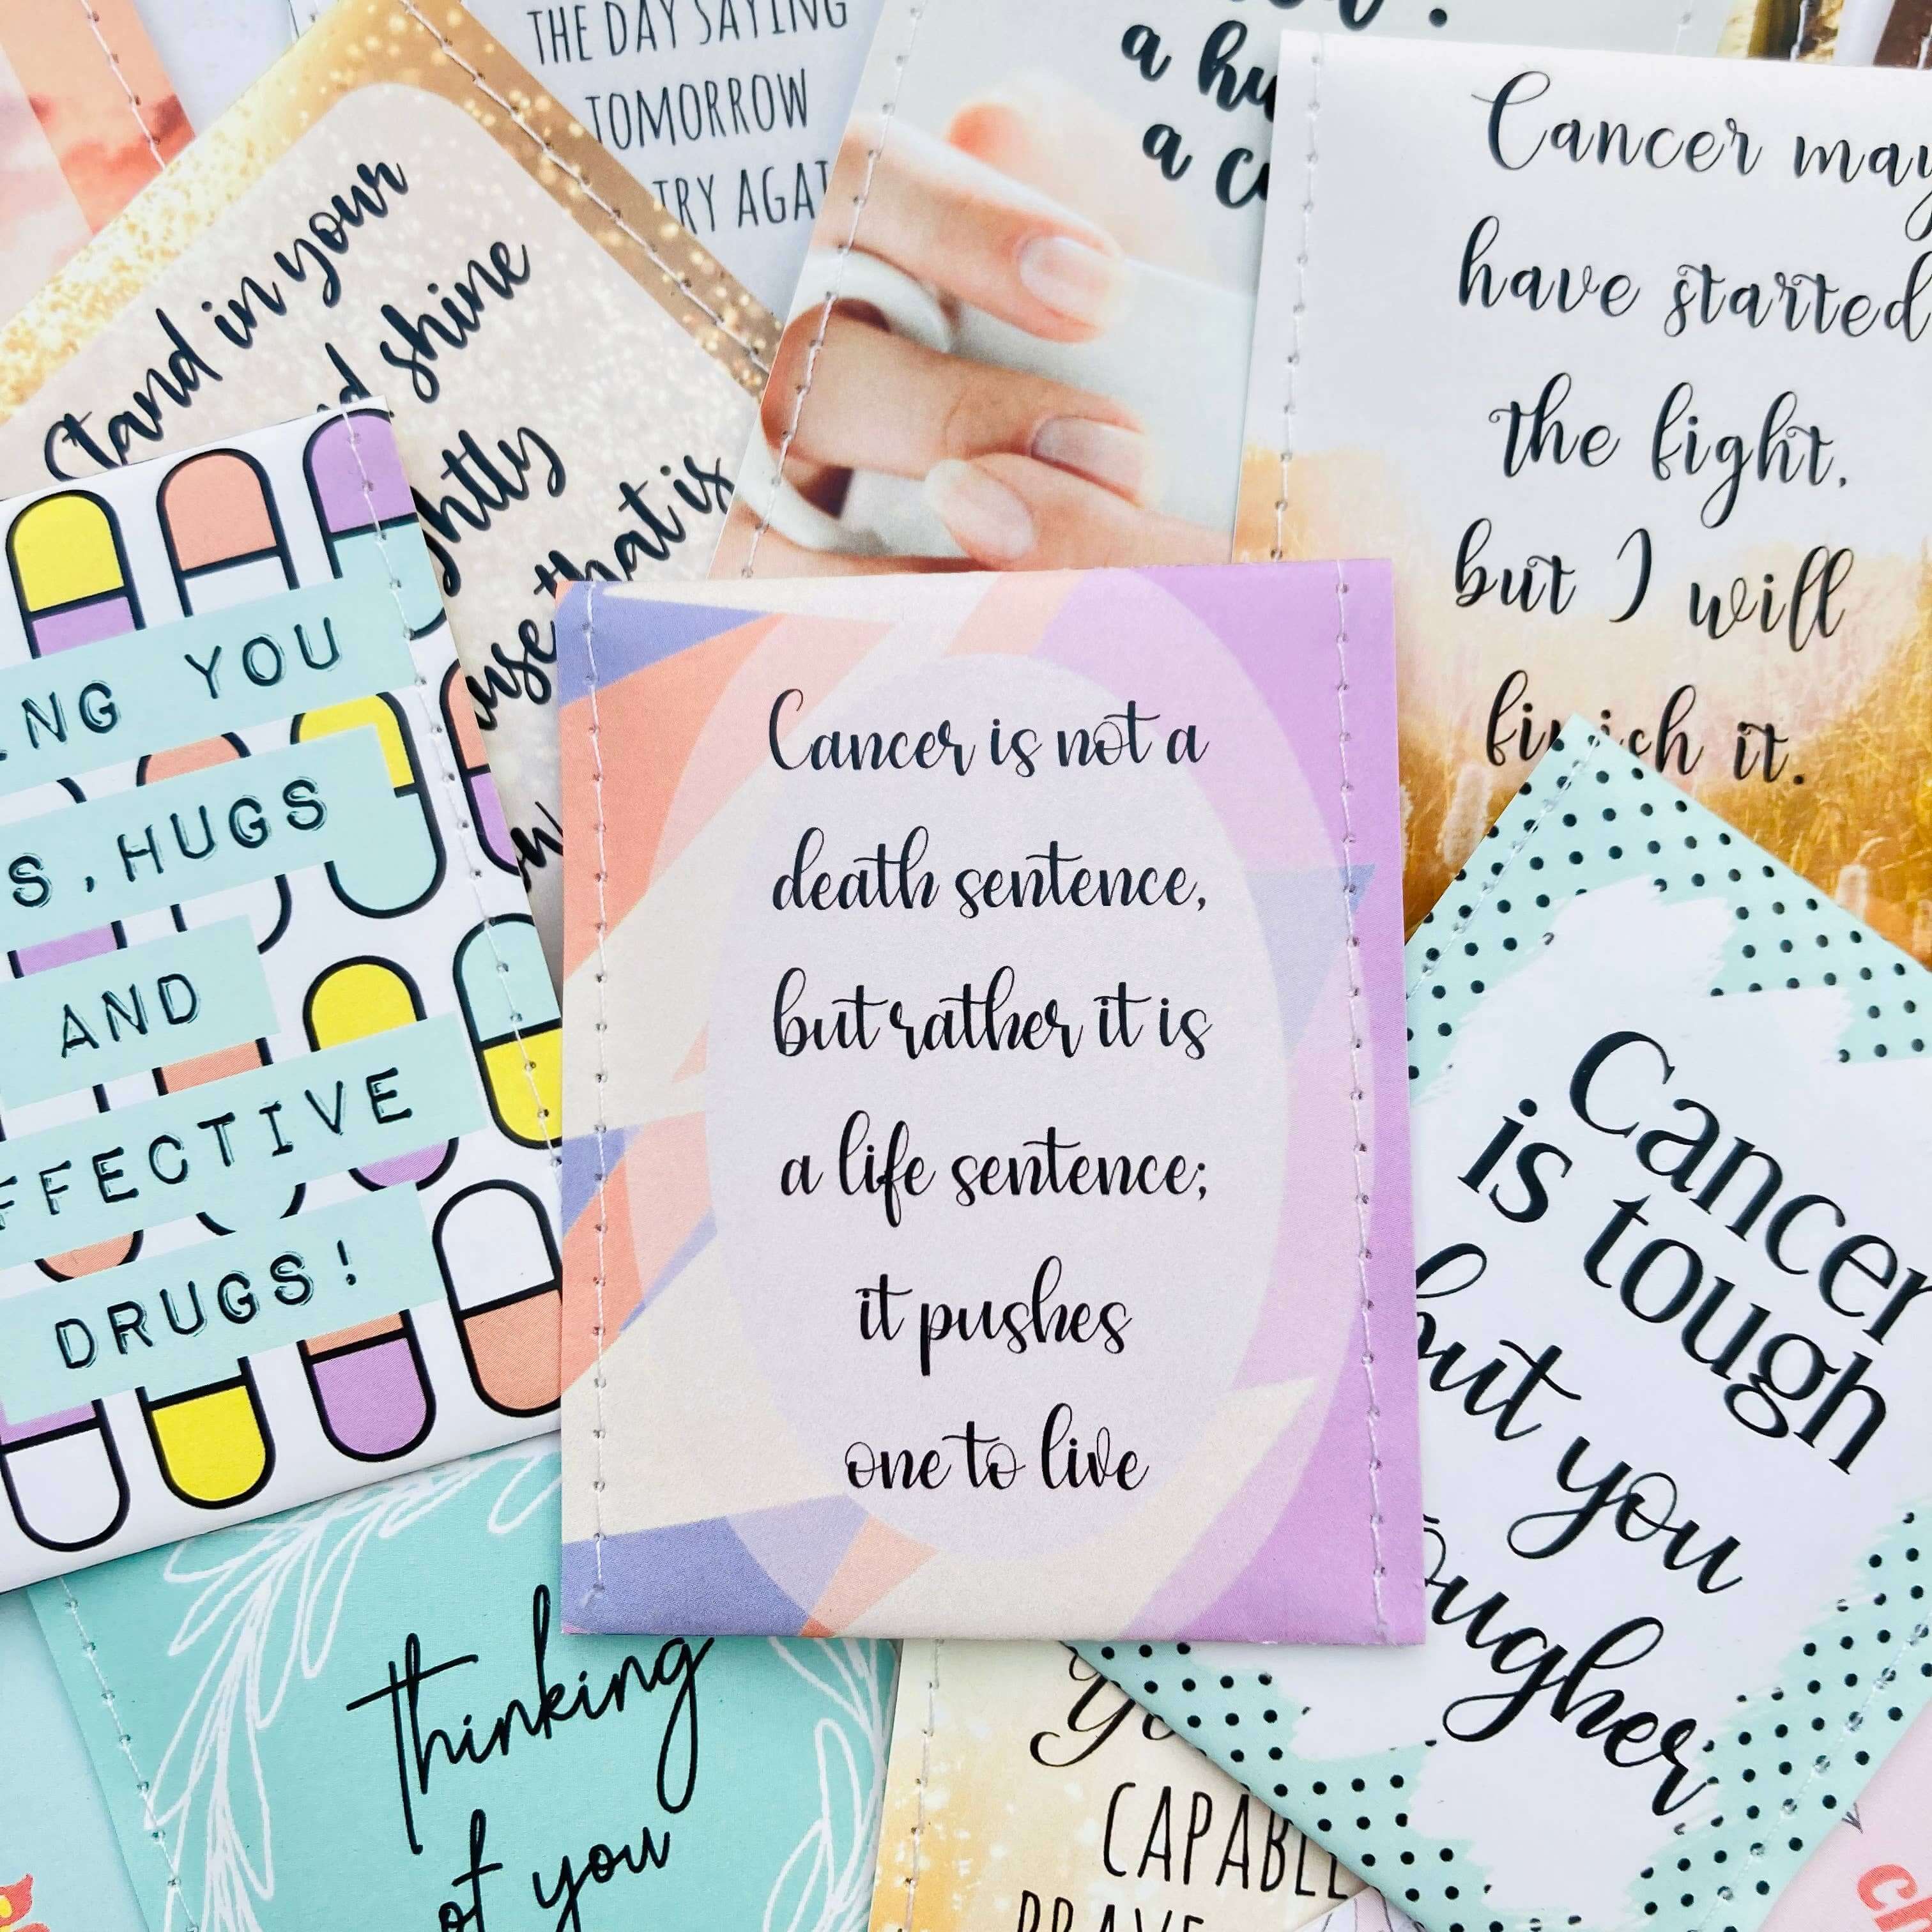 THE DAY SAYING
TOMORROW
TRY
a
a
Cancer may
have started
the fight,
but I will
finish it.
Stand in your
shine
that is
YOU
HUGS
AND
DRUGS!
Cancer is not a
death sentence,
but rather it is
a life sentence;
it pushes
one to live
Cancer
is tough
but you
thinking
of you